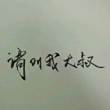 请叫我大叔